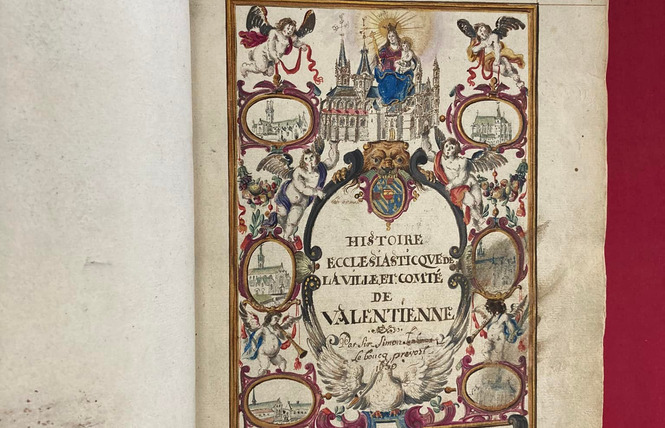 HISTOIRE
ECCLESIASTICQVE DE
LA VILLE ET COMTÉ
DE
VALENTIENNE
Par Sir Simon
le boucq prevost
1650